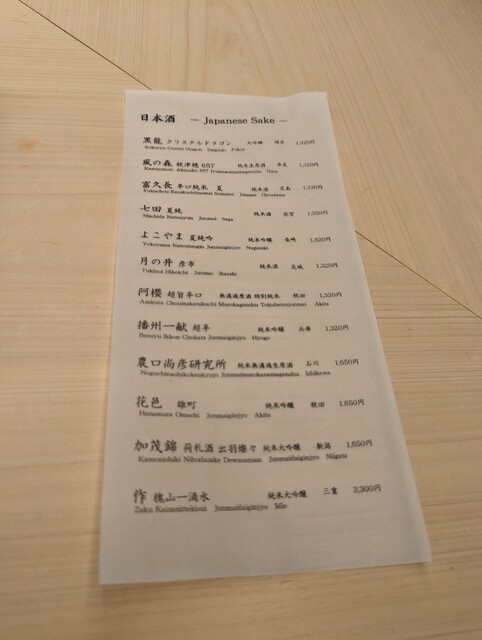 日本酒 ― Japanese Sake ―
黒龍 クリスタルドラゴン 大吟醸 福井 1,320円
Kokuryu Crystal Dragon Daiginjo Fukui
風の森 秋津穂 657 純米生原酒 奈良 1,320円
Kazenomori Akitsuho 657 Nara
富久長 辛口純米 夏 純米酒 広島 1,320円
Fukucho Karakuchijunmai Summer Junmai Hiroshima
七田 夏純 純米酒 佐賀 1,320円
Shichida Natsujyun Junmai Saga
よこやま 夏純吟 純米吟醸 長崎 1,320円
Yokoyama Natsujungin Junmaiginjyo Nagasaki
月の井 彦市 純米酒 茨城 1,320円
Tukinoi Hikoichi Junmai Ibaraki
阿櫻 超旨辛口 無濾過原酒 特別純米 秋田 1,320円
Azakura Choumakarakuchi Murokagenshu Tokubetsujunmai Akita
播州一献 超辛 純米吟醸 兵庫 1,320円
Bansyu Ikkon Chokara Junmaiginjyo Hyogo
農口尚彦研究所 純米無濾過生原酒 石川 1,650円
Noguchinaohikokenkyujo Junmaimurokanamagenshu Ishikawa
花邑 雄町 純米吟醸 秋田 1,650円
Hanamura Omachi Junmaiginjyo Akita
加茂錦 荷札酒 出羽燦々 純米大吟醸 新潟 1,650円
Kamonishiki Nifudazake Dewasansan Junmaidaiginjyo Niigata
作 槐山一滴水 純米大吟醸 三重 3,300円
Zaku Kaizanittekisui Junmaidaiginjyo Mie